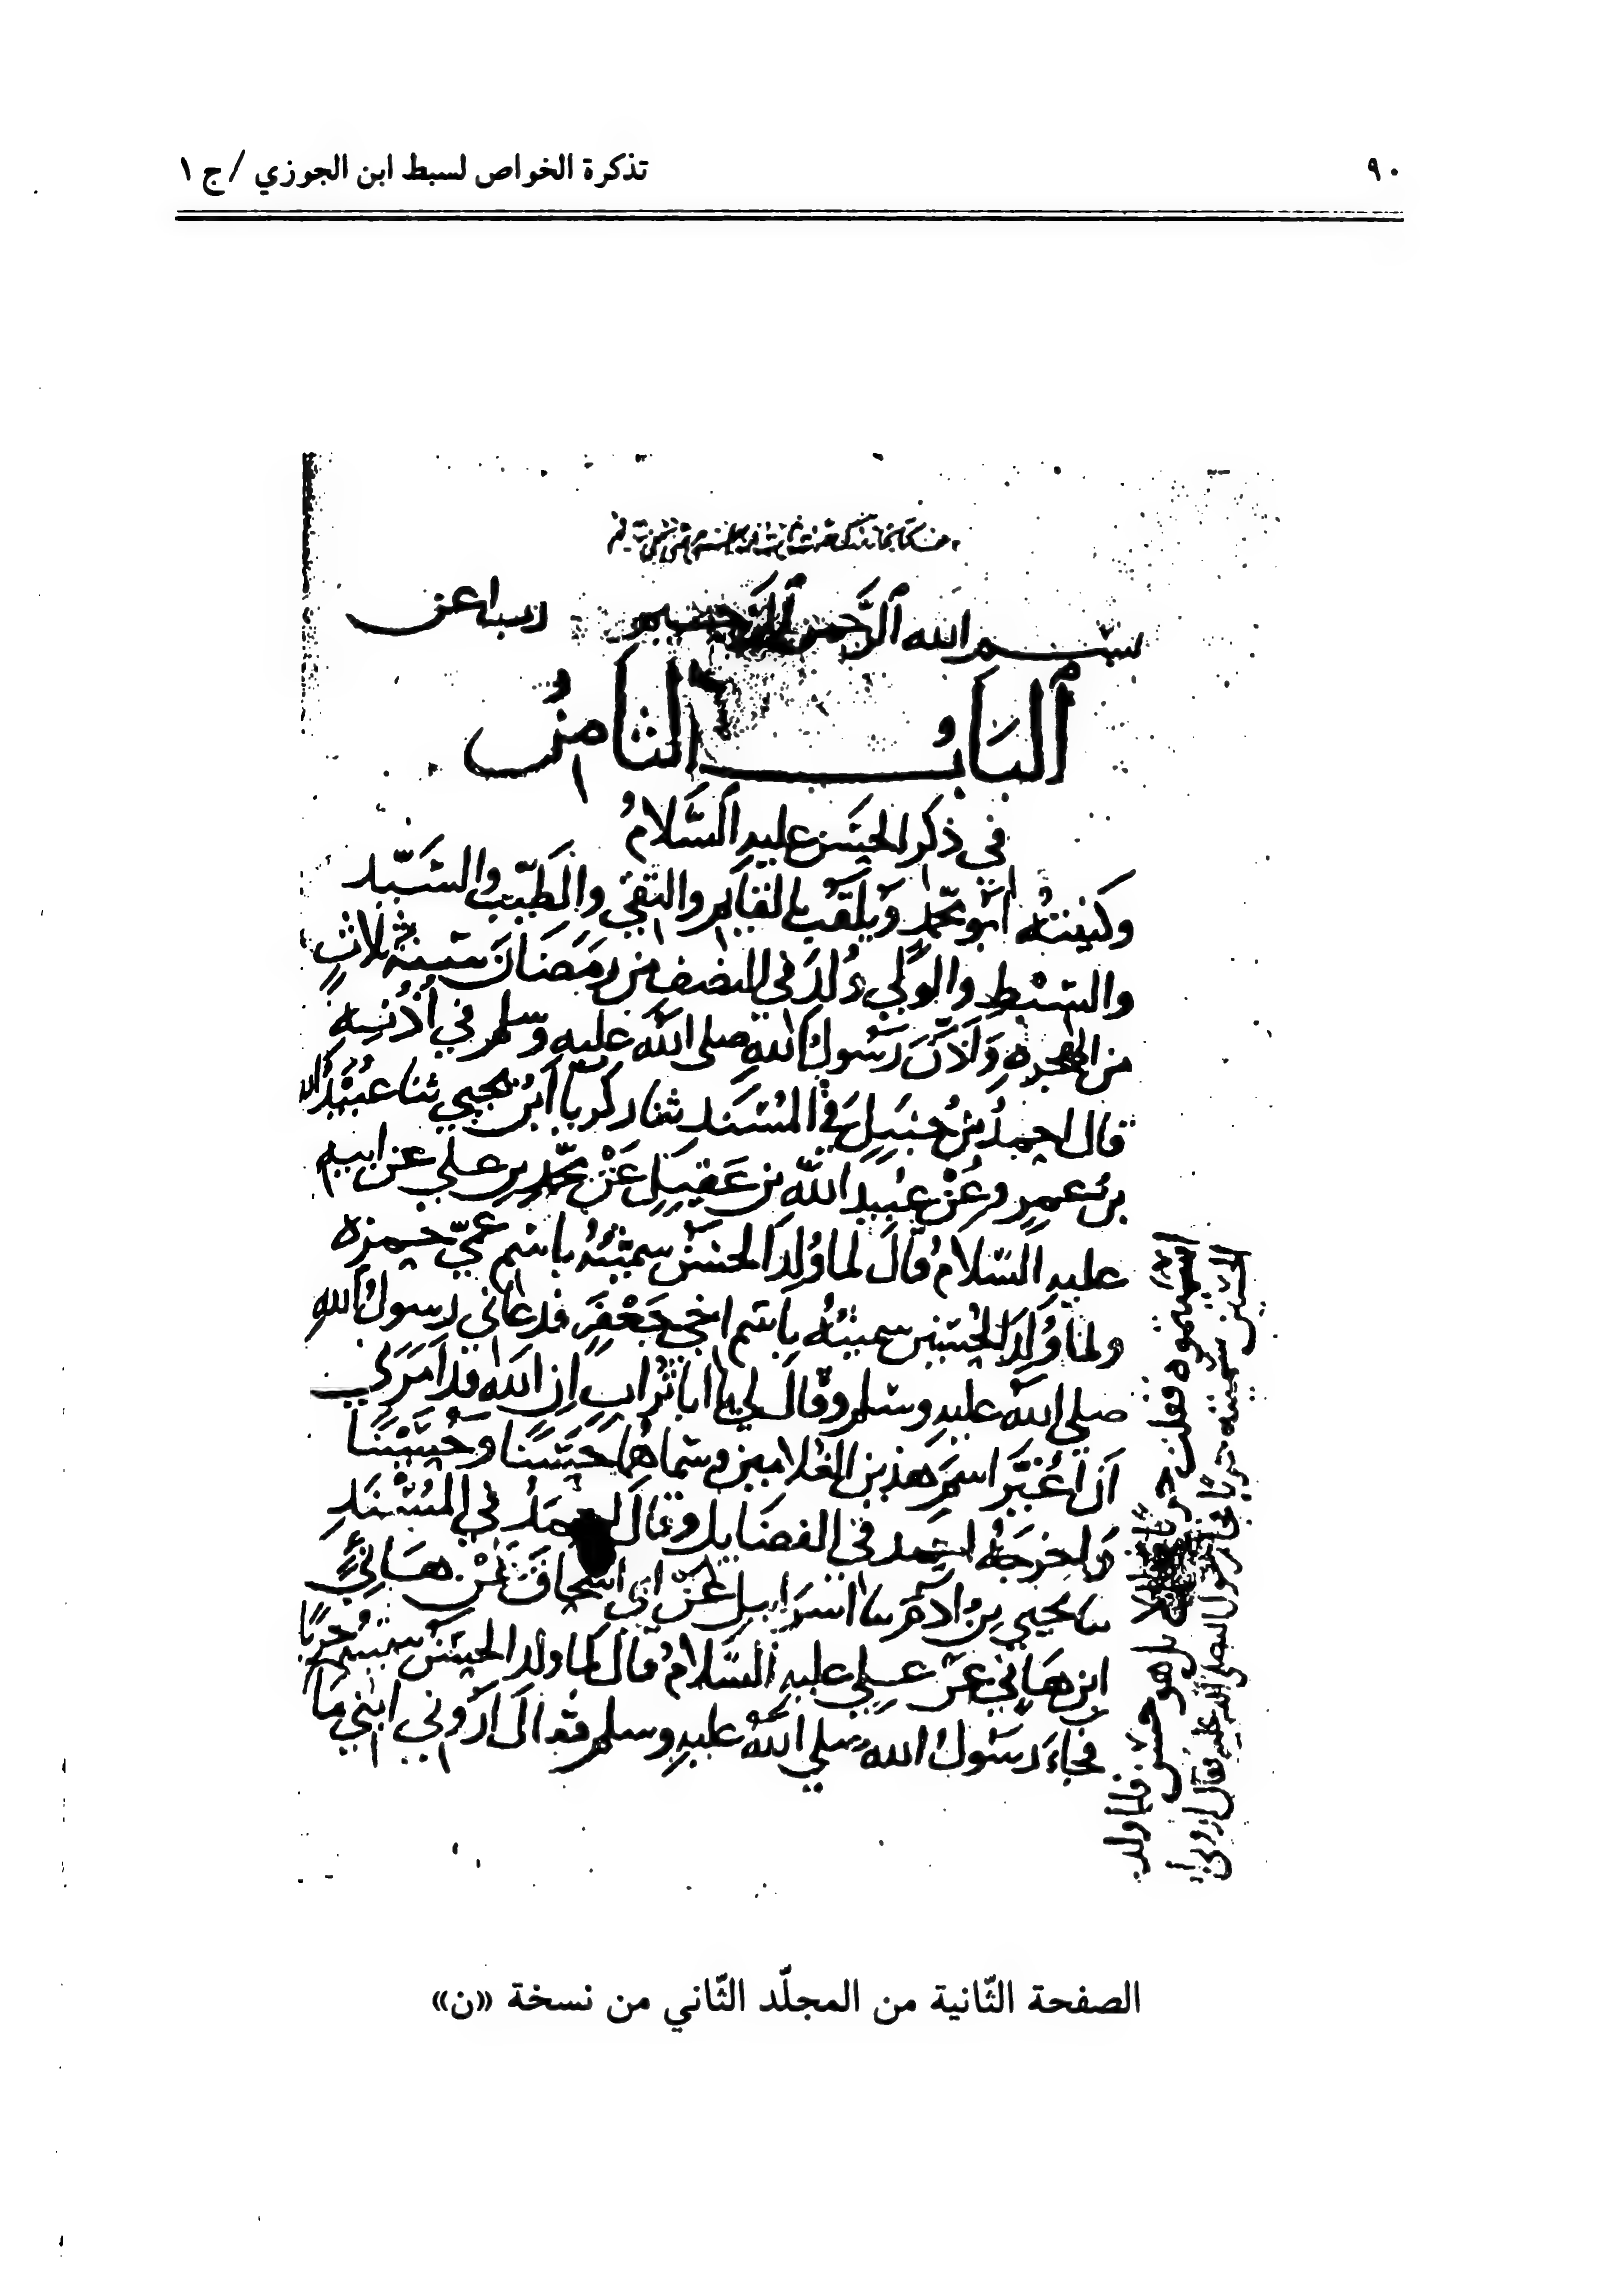 ٩٠
تذكرة الخواص لسبط ابن الجوزي / ج ١
بسم الله الرحمن الرحيم رب اعن
الباب الثامن
في ذكر الحسن عليه السلام
وكنيته أبو محمد ويلقب بالقايم والتقي والطيب والسيد
والسبط والولي ولد في النصف من رمضان سنة ثلاث
من الهجرة وأذن رسول الله صلى الله عليه وسلم في أذنيه
قال احمد بن حنبل في المسند ثنا زكريا ابن يحيى ثنا عبيد الله
بن عمرو عن عبيد الله بن عقيل عن محمد بن علي عن ابيه
عليه السلام قال لما ولد الحسن سميته باسم عمي حمزه
ولما ولد الحسين سميته باسم اخي جعفر فدعاني رسول الله
صلى الله عليه وسلم وقال لي يا ابا تراب إن الله قد أمرني
أن أغير اسم هذين الغلامين وسماهما حسنا وحسينا
اخرجه احمد في الفضايل وقال احمد في المسند
يحيى بن ادم اسرايل عن ابي اسحاق عن هانئ
ابن هاني عن علي عليه السلام قال لما ولد الحسن سميته حربا
فجاء رسول الله صلى الله عليه وسلم فقال أروني ابني ما
سميتموه فقلت حربا
بل هو حسن فلما ولد
الحسين سميته حربا فجاء رسول الله صلى الله عليه فقال اروني
الصفحة الثّانية من المجلّد الثّاني من نسخة «ن»